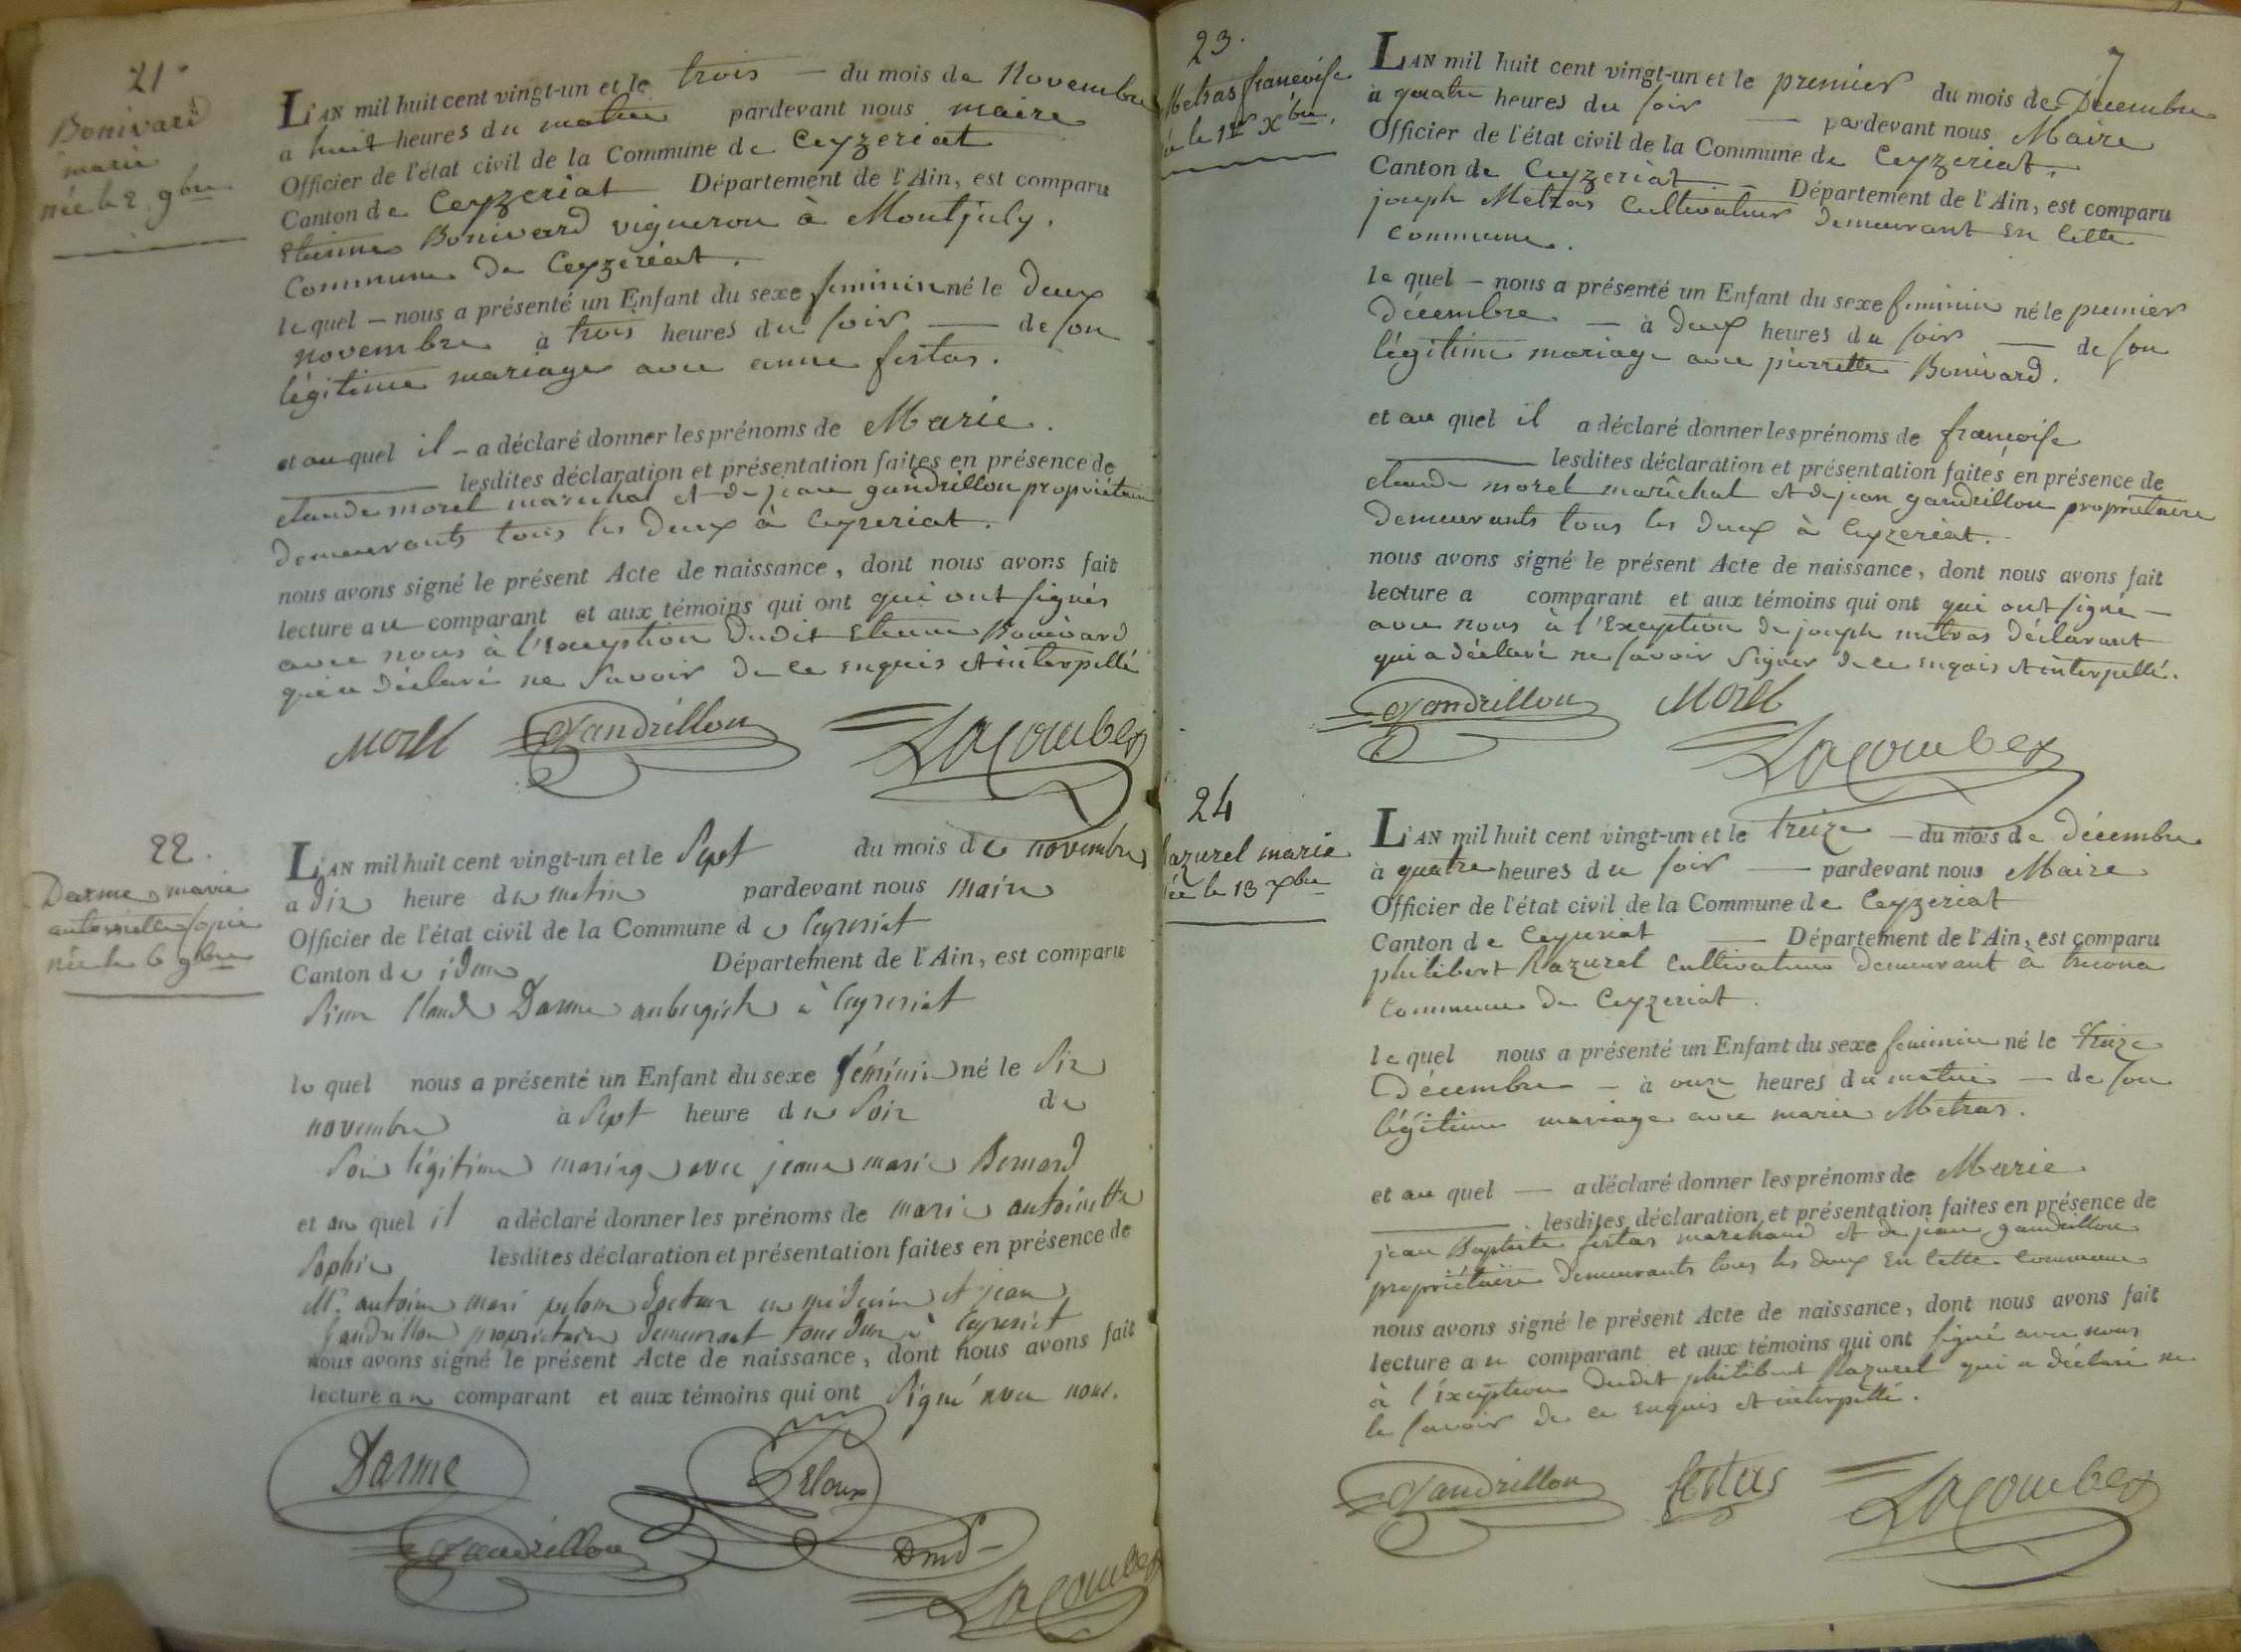 21
Bonivard
marie
née le 2 9bre
L'AN mil huit cent vingt-un et le trois — du mois de Novembre
a huit heures du matin pardevant nous maire
Officier de l'état civil de la Commune de Ceyzeriat
Canton de Ceyzeriat Département de l'Ain, est comparu
Etienne Bonivard vigneron à Montjuly,
Commune de Ceyzériat.
le quel — nous a présenté un Enfant du sexe feminin né le deux
novembre à trois heures du soir — de son
légitime mariage avec anne festas.
et au quel il — a déclaré donner les prénoms de Marie.
lesdites déclaration et présentation faites en présence de
claude morel maréchal et de jean gandrillon propriétaire
demeurants tous les deux à Ceyzeriat.
nous avons signé le présent Acte de naissance, dont nous avons fait
lecture au comparant et aux témoins qui ont qui ont signés
avec nous à l'exception dudit Etienne Bonivard
qui a déclaré ne savoir de ce enquis et interpellé
Morel Gandrillon Lacombe
22.
Darme marie
antoinette sophie
née le 6 9bre
L'AN mil huit cent vingt-un et le sept du mois de novembre
a dix heure du matin pardevant nous maire
Officier de l'état civil de la Commune de Ceyzeriat
Canton de idem Département de l'Ain, est comparu
Sieur Claude Darme aubergiste à Ceyzeriat
le quel nous a présenté un Enfant du sexe féminin né le six
novembre à sept heure du soir de
son légitime mariage avec jeanne marie Bernard
et au quel il a déclaré donner les prénoms de marie antoinette
Sophie lesdites déclaration et présentation faites en présence de
Mr. antoine mari docteur en médecine et jean
Gandrillon propriétaire demeurant tous deux à Ceyzeriat
nous avons signé le présent Acte de naissance, dont nous avons fait
lecture au comparant et aux témoins qui ont signé avec nous.
Darme
Gandrillon
Lacombe
7
23.
Metras françoise
née le 1er Xbre.
L'AN mil huit cent vingt-un et le premier du mois de Décembre
à quatre heures du soir — pardevant nous Maire
Officier de l'état civil de la Commune de Ceyzeriat,
Canton de Ceyzeriat — Département de l'Ain, est comparu
joseph Metras Cultivateur demeurant en cette
commune.
le quel — nous a présenté un Enfant du sexe feminin né le premier
décembre — à deux heures du soir — de son
légitime mariage avec pierrette Bonivard.
et au quel il a déclaré donner les prénoms de françoise
lesdites déclaration et présentation faites en présence de
claude morel maréchal et de jean gandrillon propriétaire
demeurants tous les deux à Ceyzeriat.
nous avons signé le présent Acte de naissance, dont nous avons fait
lecture a comparant et aux témoins qui ont qui ont signé —
avec nous à l'Exception de joseph metras déclarant
qui a déclaré ne savoir signer de ce enquis et interpellé.
Gandrillon Morel
Lacombe
24
Razurel marie
née le 13 Xbre
L'AN mil huit cent vingt-un et le treize — du mois de décembre
à quatre heures du soir — pardevant nous Maire
Officier de l'état civil de la Commune de Ceyzeriat
Canton de Ceyzeriat — Département de l'Ain, est comparu
philibert Razurel cultivateur demeurant à
Commune de Ceyzeriat.
le quel nous a présenté un Enfant du sexe feminin né le treize
Décembre — à onze heures du matin — de son
légitime mariage avec marie Metras.
et au quel — a déclaré donner les prénoms de Marie.
lesdites déclaration et présentation faites en présence de
jean Baptiste festas marchand et de jean gandrillon
propriétaire demeurants tous les deux en cette commune
nous avons signé le présent Acte de naissance, dont nous avons fait
lecture au comparant et aux témoins qui ont signé avec nous
à l'éxception dudit philibert Razurel qui a déclaré ne
le savoir de ce enquis et interpellé.
Gandrillon festas Lacombe